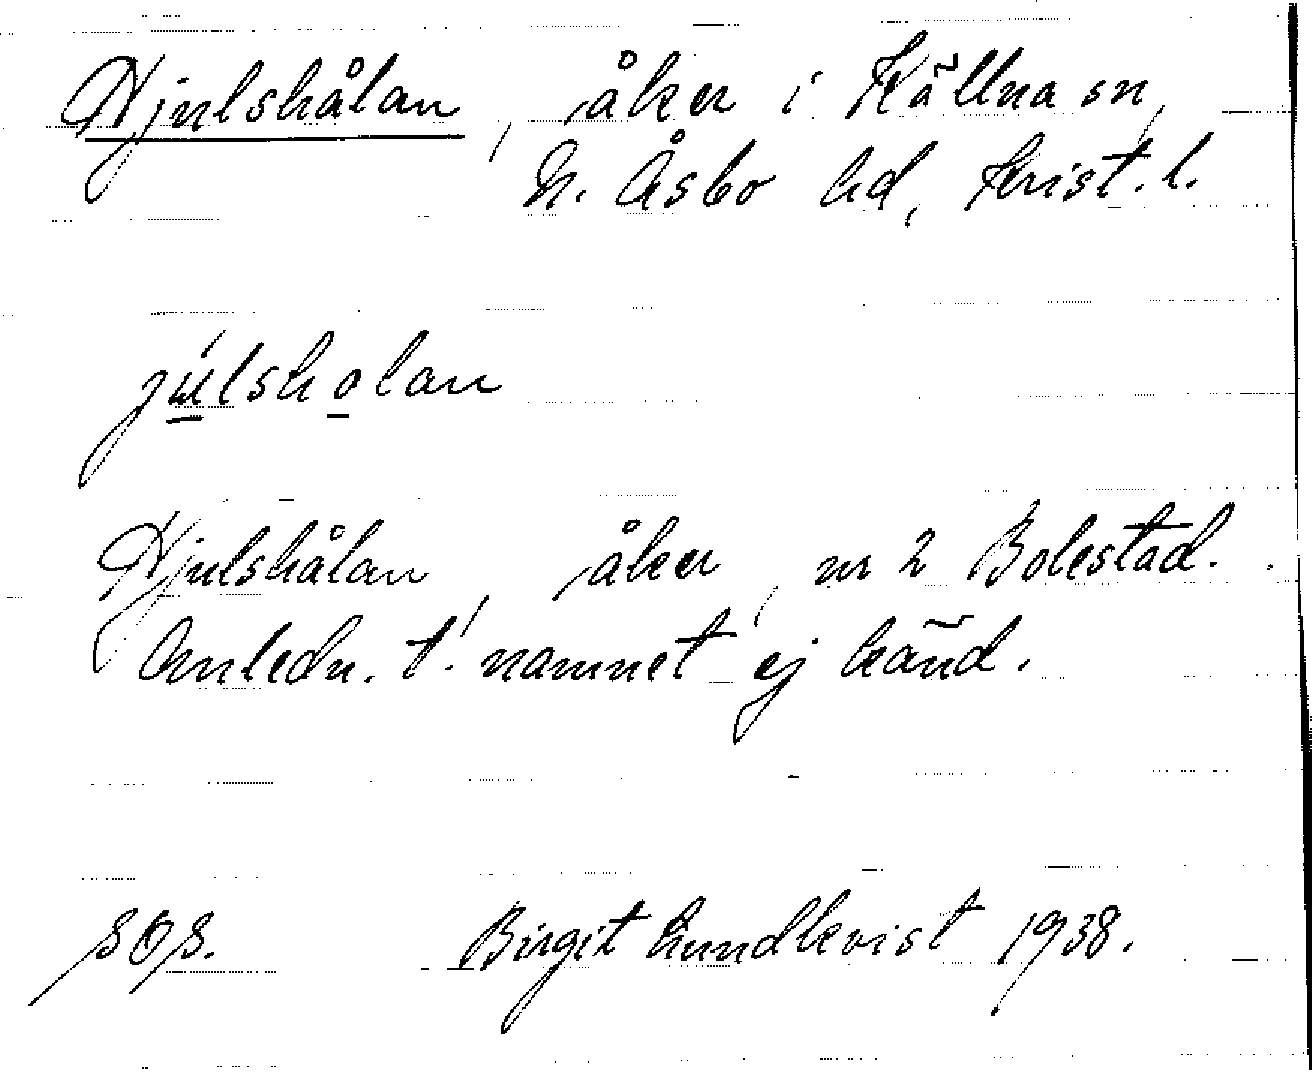 Hjulshålan, åker i Källna sn,
N. Åsbo hd, Krist. l.
júlsholan
Hjulshålan, åker, nr 2 Bolestad.
Anledn. t. namnet ej känd.
SOS. Birgit Lundkvist 1938.